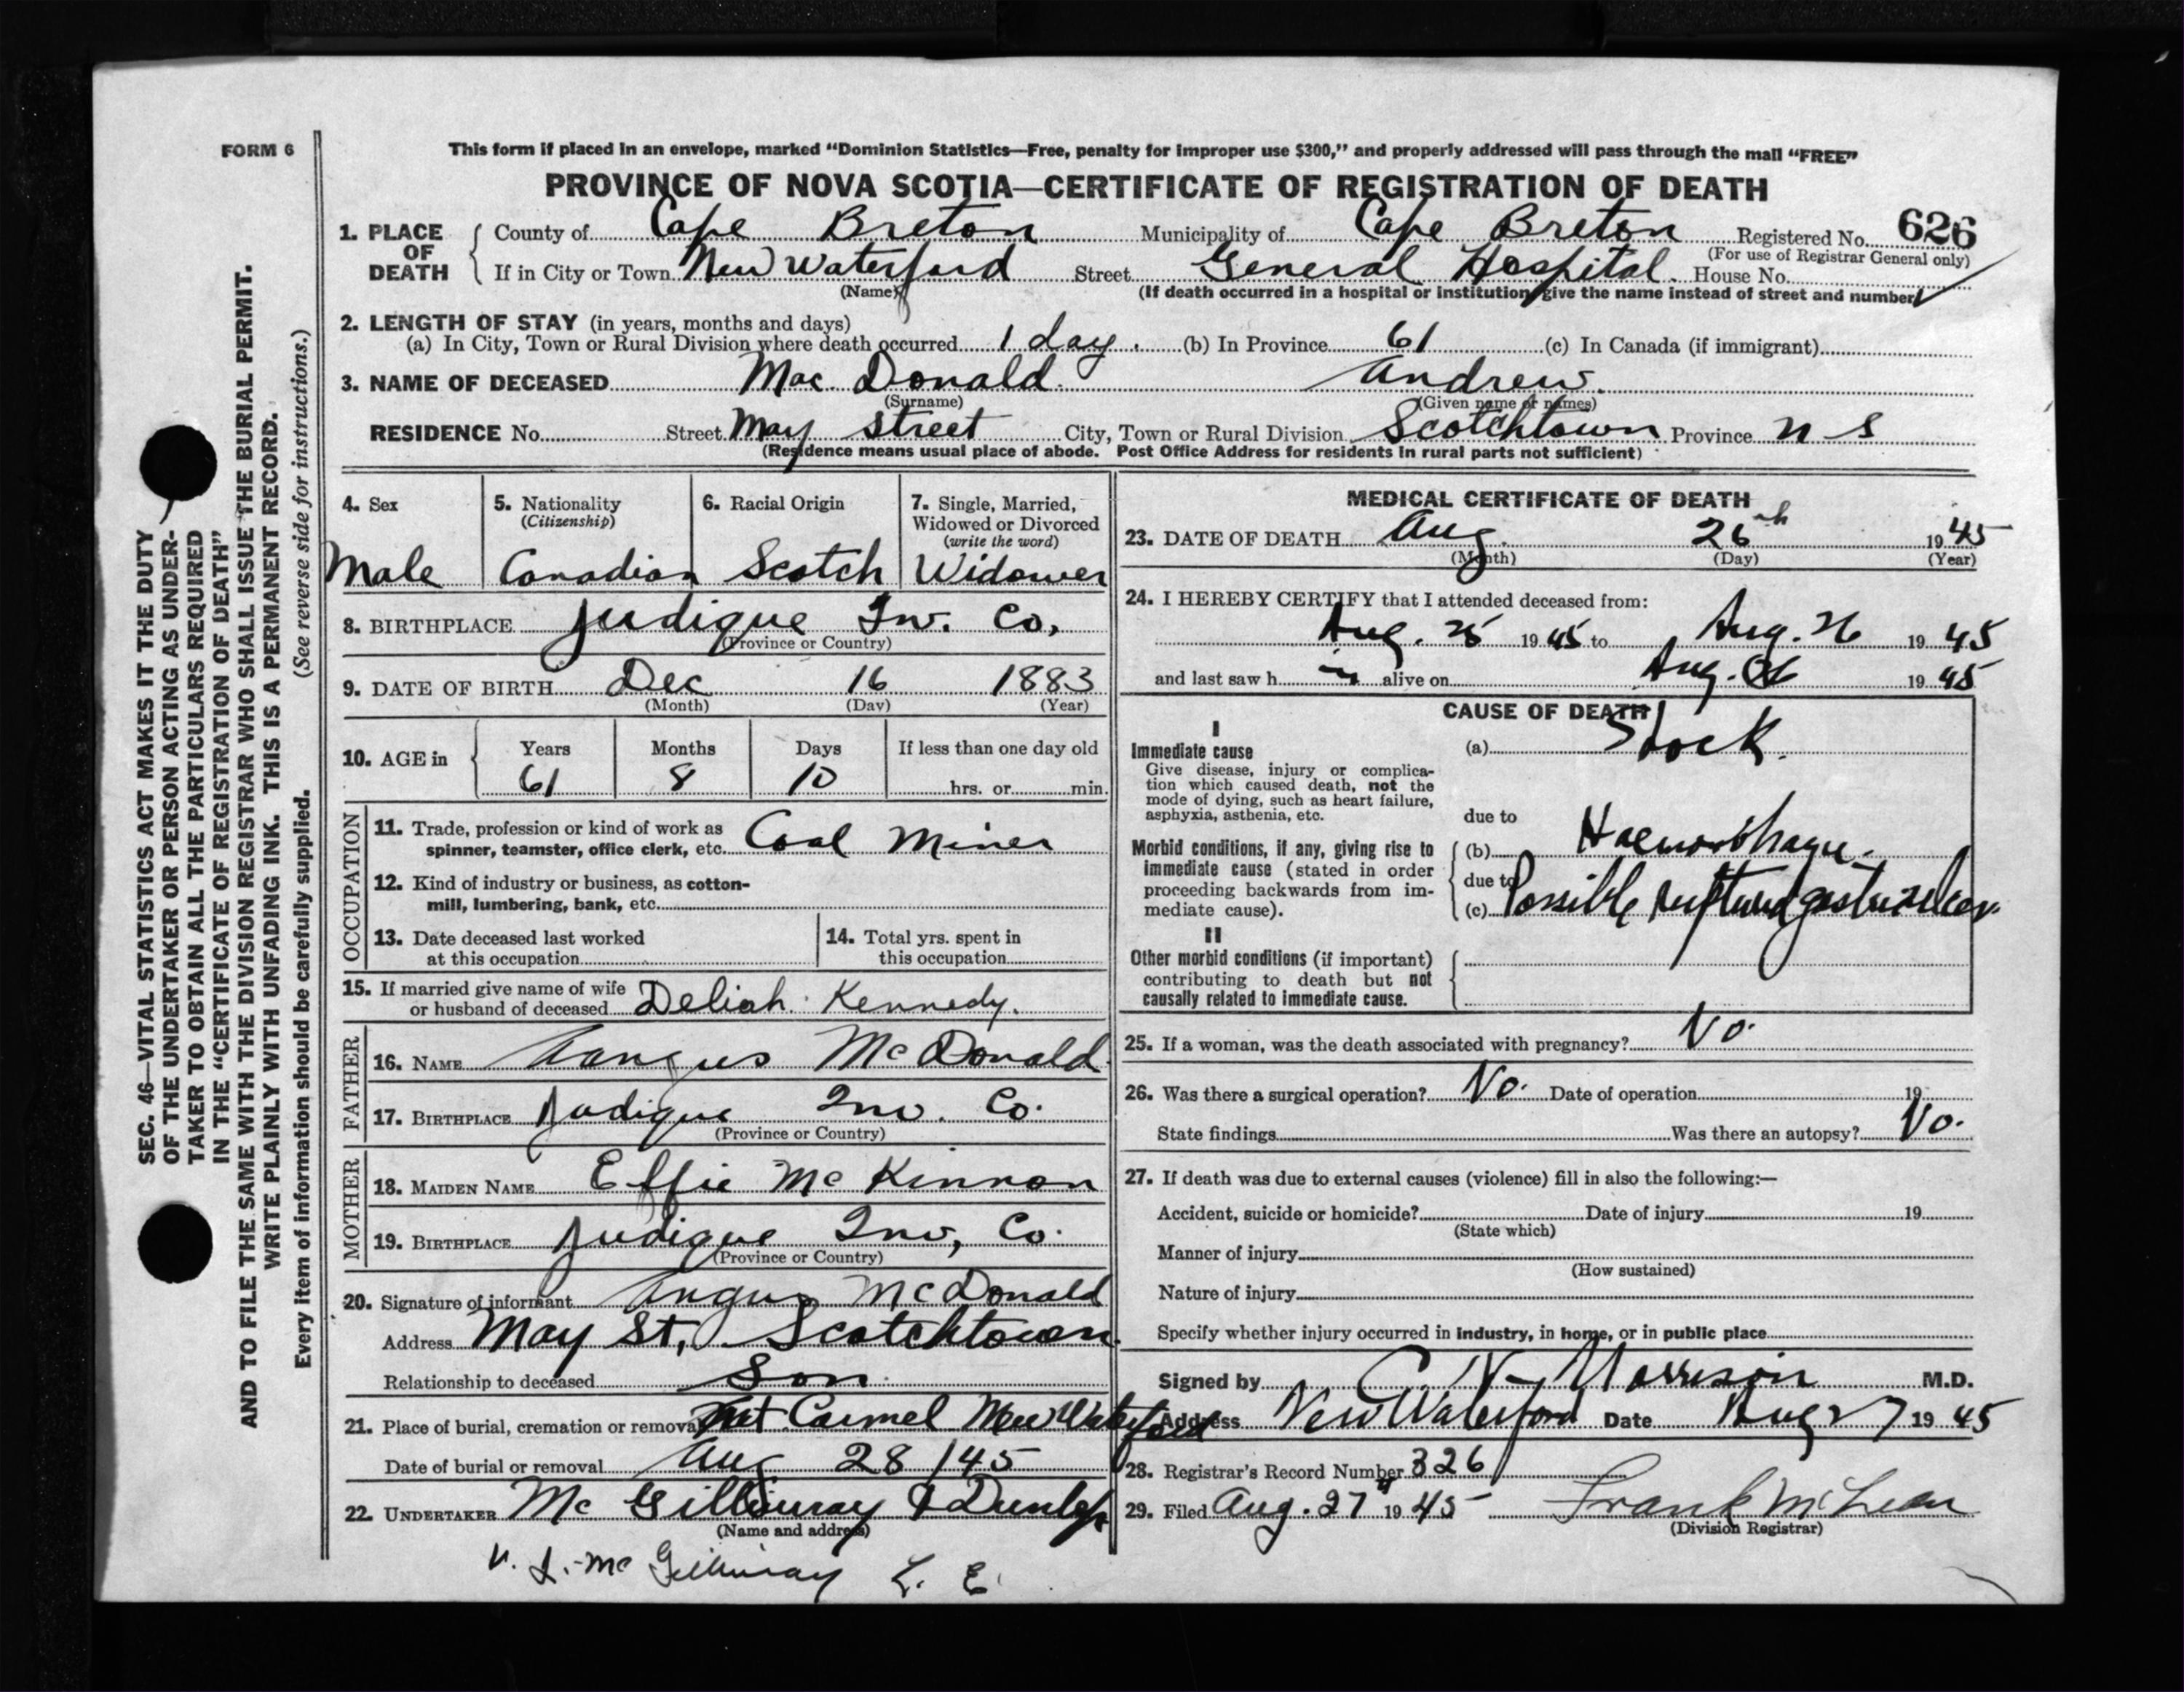 FORM 6
This form if placed in an envelope, marked "Dominion Statistics—Free, penalty for improper use $300," and properly addressed will pass through the mail "FREE"
PROVINCE OF NOVA SCOTIA—CERTIFICATE OF REGISTRATION OF DEATH
1. PLACE OF DEATH County of Cape Breton Municipality of Cape Breton Registered No. 626
(For use of Registrar General only)
If in City or Town New Waterford Street General Hospital House No.
(Name) (If death occurred in a hospital or institution, give the name instead of street and number)
2. LENGTH OF STAY (in years, months and days)
(a) In City, Town or Rural Division where death occurred 1 day. (b) In Province 61 (c) In Canada (if immigrant)
3. NAME OF DECEASED Mac Donald Andrew
(Surname) (Given name or names)
RESIDENCE No. Street May Street City, Town or Rural Division Scotchtown Province N S
(Residence means usual place of abode. Post Office Address for residents in rural parts not sufficient)
4. Sex Male
5. Nationality (Citizenship) Canadian
6. Racial Origin Scotch
7. Single, Married, Widowed or Divorced (write the word) Widower
8. BIRTHPLACE Judique Inv. Co.
(Province or Country)
9. DATE OF BIRTH Dec 16 1883
(Month) (Day) (Year)
10. AGE in Years Months Days If less than one day old
61 8 10 hrs. or min.
OCCUPATION
11. Trade, profession or kind of work as
spinner, teamster, office clerk, etc. Coal Miner
12. Kind of industry or business, as cotton-
mill, lumbering, bank, etc.
13. Date deceased last worked
at this occupation
14. Total yrs. spent in
this occupation
15. If married give name of wife
or husband of deceased Deliah Kennedy.
FATHER
16. NAME Aangus McDonald
17. BIRTHPLACE Judique Inv. Co.
(Province or Country)
MOTHER
18. MAIDEN NAME Effie McKinnon
19. BIRTHPLACE Judique Inv, Co.
(Province or Country)
20. Signature of informant Angus McDonald
Address May St, Scotchtown.
Relationship to deceased Son
21. Place of burial, cremation or removal Mt Carmel New Waterford
Date of burial or removal Aug 28/45
22. UNDERTAKER Mc Gillivray & Dunlop
(Name and address)
V. L. McGillivray L. E.
MEDICAL CERTIFICATE OF DEATH
23. DATE OF DEATH Aug. 26th 1945
(Month) (Day) (Year)
24. I HEREBY CERTIFY that I attended deceased from:
Aug. 25 1945 to Aug. 26 1945
and last saw h im alive on Aug. 26 1945
CAUSE OF DEATH
I
Immediate cause (a) Shock.
Give disease, injury or complica-
tion which caused death, not the
mode of dying, such as heart failure,
asphyxia, asthenia, etc.
due to
Morbid conditions, if any, giving rise to
immediate cause (stated in order
proceeding backwards from im-
mediate cause).
(b) Haemorrhague.
due to
(c) Possible ruptured gastric ulcer.
II
Other morbid conditions (if important)
contributing to death but not
causally related to immediate cause.
25. If a woman, was the death associated with pregnancy? No.
26. Was there a surgical operation? No. Date of operation 19
State findings Was there an autopsy? No.
27. If death was due to external causes (violence) fill in also the following:—
Accident, suicide or homicide? Date of injury 19
(State which)
Manner of injury
(How sustained)
Nature of injury
Specify whether injury occurred in industry, in home, or in public place
Signed by C. N. Morrison M.D.
Address New Waterford Date Aug 27 1945
28. Registrar's Record Number 326
29. Filed Aug. 27 1945 Frank McLean
(Division Registrar)
SEC. 46—VITAL STATISTICS ACT MAKES IT THE DUTY
OF THE UNDERTAKER OR PERSON ACTING AS UNDER-
TAKER TO OBTAIN ALL THE PARTICULARS REQUIRED
IN THE "CERTIFICATE OF REGISTRATION OF DEATH"
AND TO FILE THE SAME WITH THE DIVISION REGISTRAR WHO SHALL ISSUE THE BURIAL PERMIT.
WRITE PLAINLY WITH UNFADING INK. THIS IS A PERMANENT RECORD.
Every item of information should be carefully supplied. (See reverse side for instructions.)